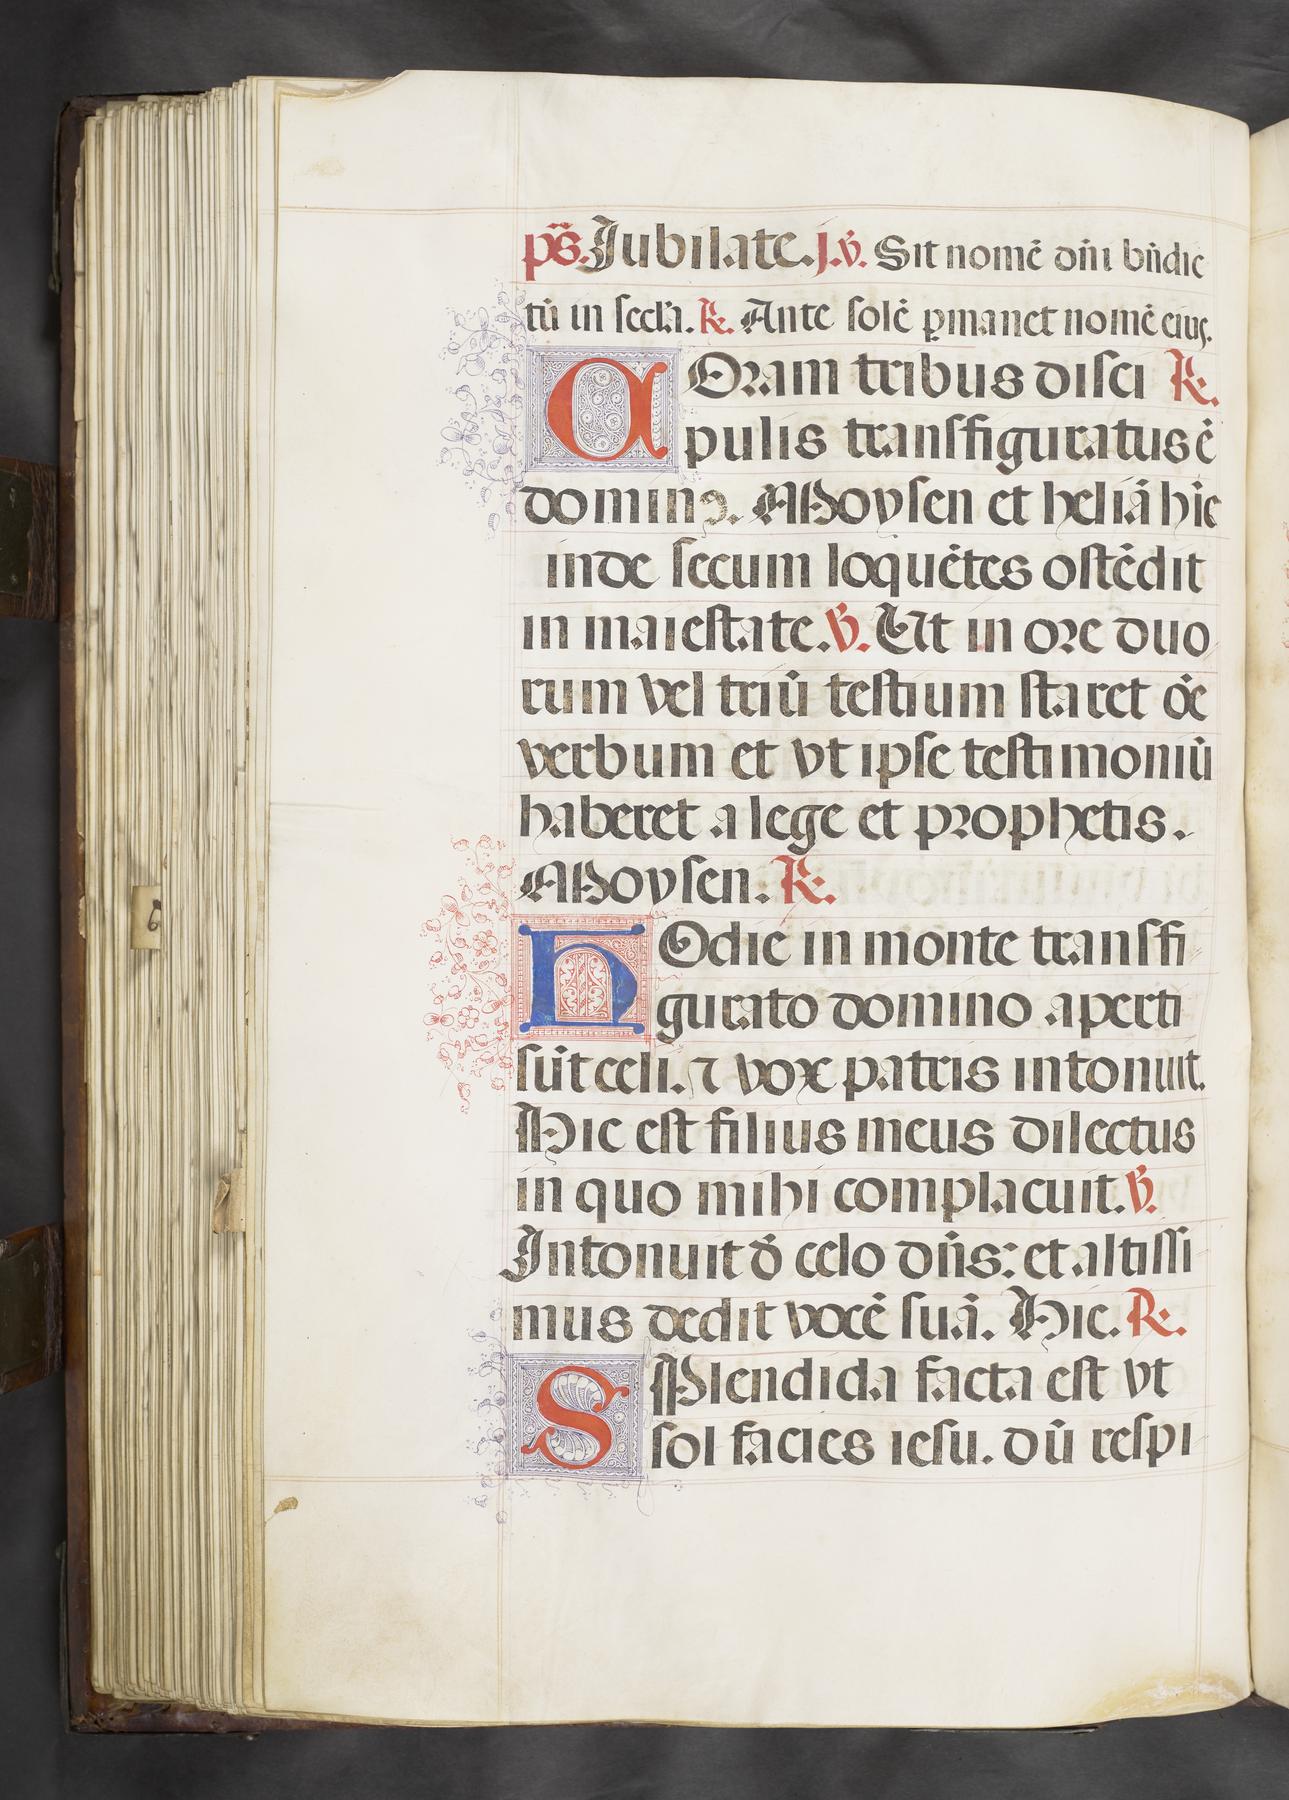 ps̄. Jubilate. j. v̄. Sit nomē dn̄i bn̄dic
tū in secl̄a. R. Ante solē ꝑmanet nomē eiuꝫ.
COram tribus disci R.
pulis transfiguratus ē
dominꝰ. Moysen et heliā hīc
inde secum loquētes ostēdit
in maiestate. v̄. Ut in ore duo
rum vel triū testium staret oē
verbum et vt ipse testimoniū
haberet a lege et prophetis.
Moysen. R.
HOdie in monte transfi
gurato domino aperti
sūt celi. ⁊ vox patris intonuit.
Hic est filius meus dilectus
in quo mihi complacuit. v̄.
Intonuit d̄ celo dn̄s: et altissi
mus dedit vocē suā. Hic. R.
SPlendida facta est vt
sol facies iesu. dū respi
6